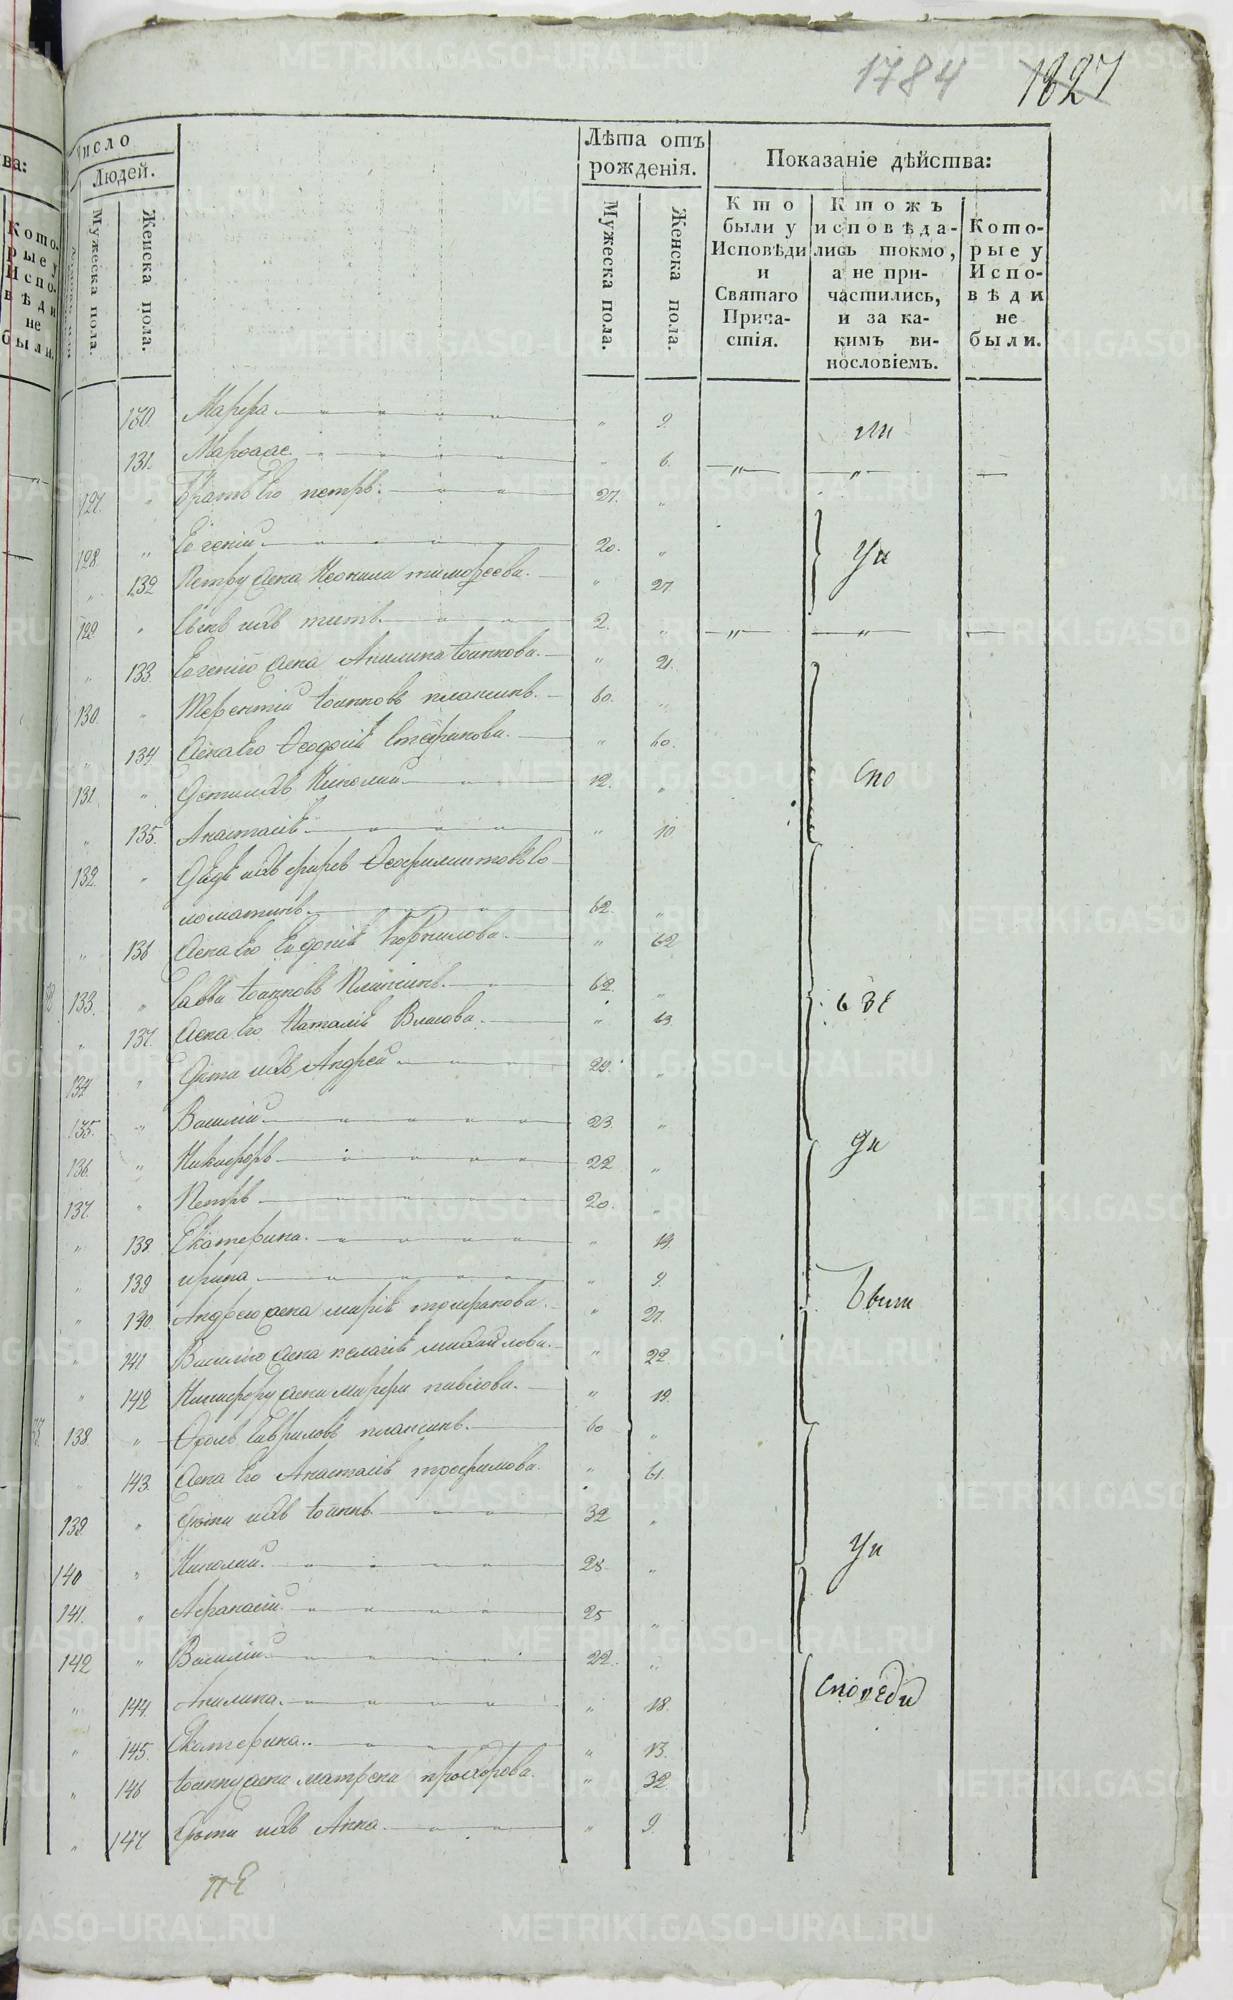 1784 1827
число
Людей.
Мужеска пола.
Женска пола.
Лѣта отъ рожденія.
Мужеска пола.
Женска пола.
Показаніе дѣйства:
Кто были у Исповѣди и Святаго Прича-стія.
Ктожъ исповѣда-лись токмо, а не при-частились, и за ка-кимъ ви-нословіемъ.
Кото-рые у Испо-вѣди не были.
130. Марѳа 9.
131. 6.
127. Братъ Его петръ. 27.
128. Евгеній 20.
132 Петру жена Неонила тимоѳеева. 27
129 Сынъ ихъ титъ 2.
133. Евгенію жена Акилина Іоаннова. 21.
130. Терентій Іоанновъ плаксинъ. 60.
134 Жена Его Ѳеодосіѣ Стефанова. 60.
131. Дети ихъ Николай 12.
135. Анастасіѣ 10
132.
ломатинъ. 62.
136 Жена Его Евдокіѣ Корнилова. 62
133. Савва Іоанновъ Плаксинъ. 62.
137. Жена Его Наталіѣ Власова. 63.
134 Дѣти ихъ Андрей 29.
135. Василій 23.
136. Никифоръ 22
137. Петръ 20.
138. Екатерина. 14.
139 ирина 9.
140. Андрею жена маріѣ трофимова. 27.
141 Василію жена пелагіѣ михайлова. 22
142 Никифору жена марѳа павлова. 19.
138 Фролъ Гавриловъ плаксинъ. 60
143. Жена Его Анастасіѣ трофимова. 61.
139. Дѣти ихъ Іоаннъ 32
140 Николай. 28.
141. Афанасій 25
142 Василій 22.
144. Акилина. 18.
145. Екатерина. 13.
146 Іоанну жена матрена прохорова. 32
147 Дѣти ихъ Анна 9.
ли
Уи
спо
везе
ди
были
Уи
споведи